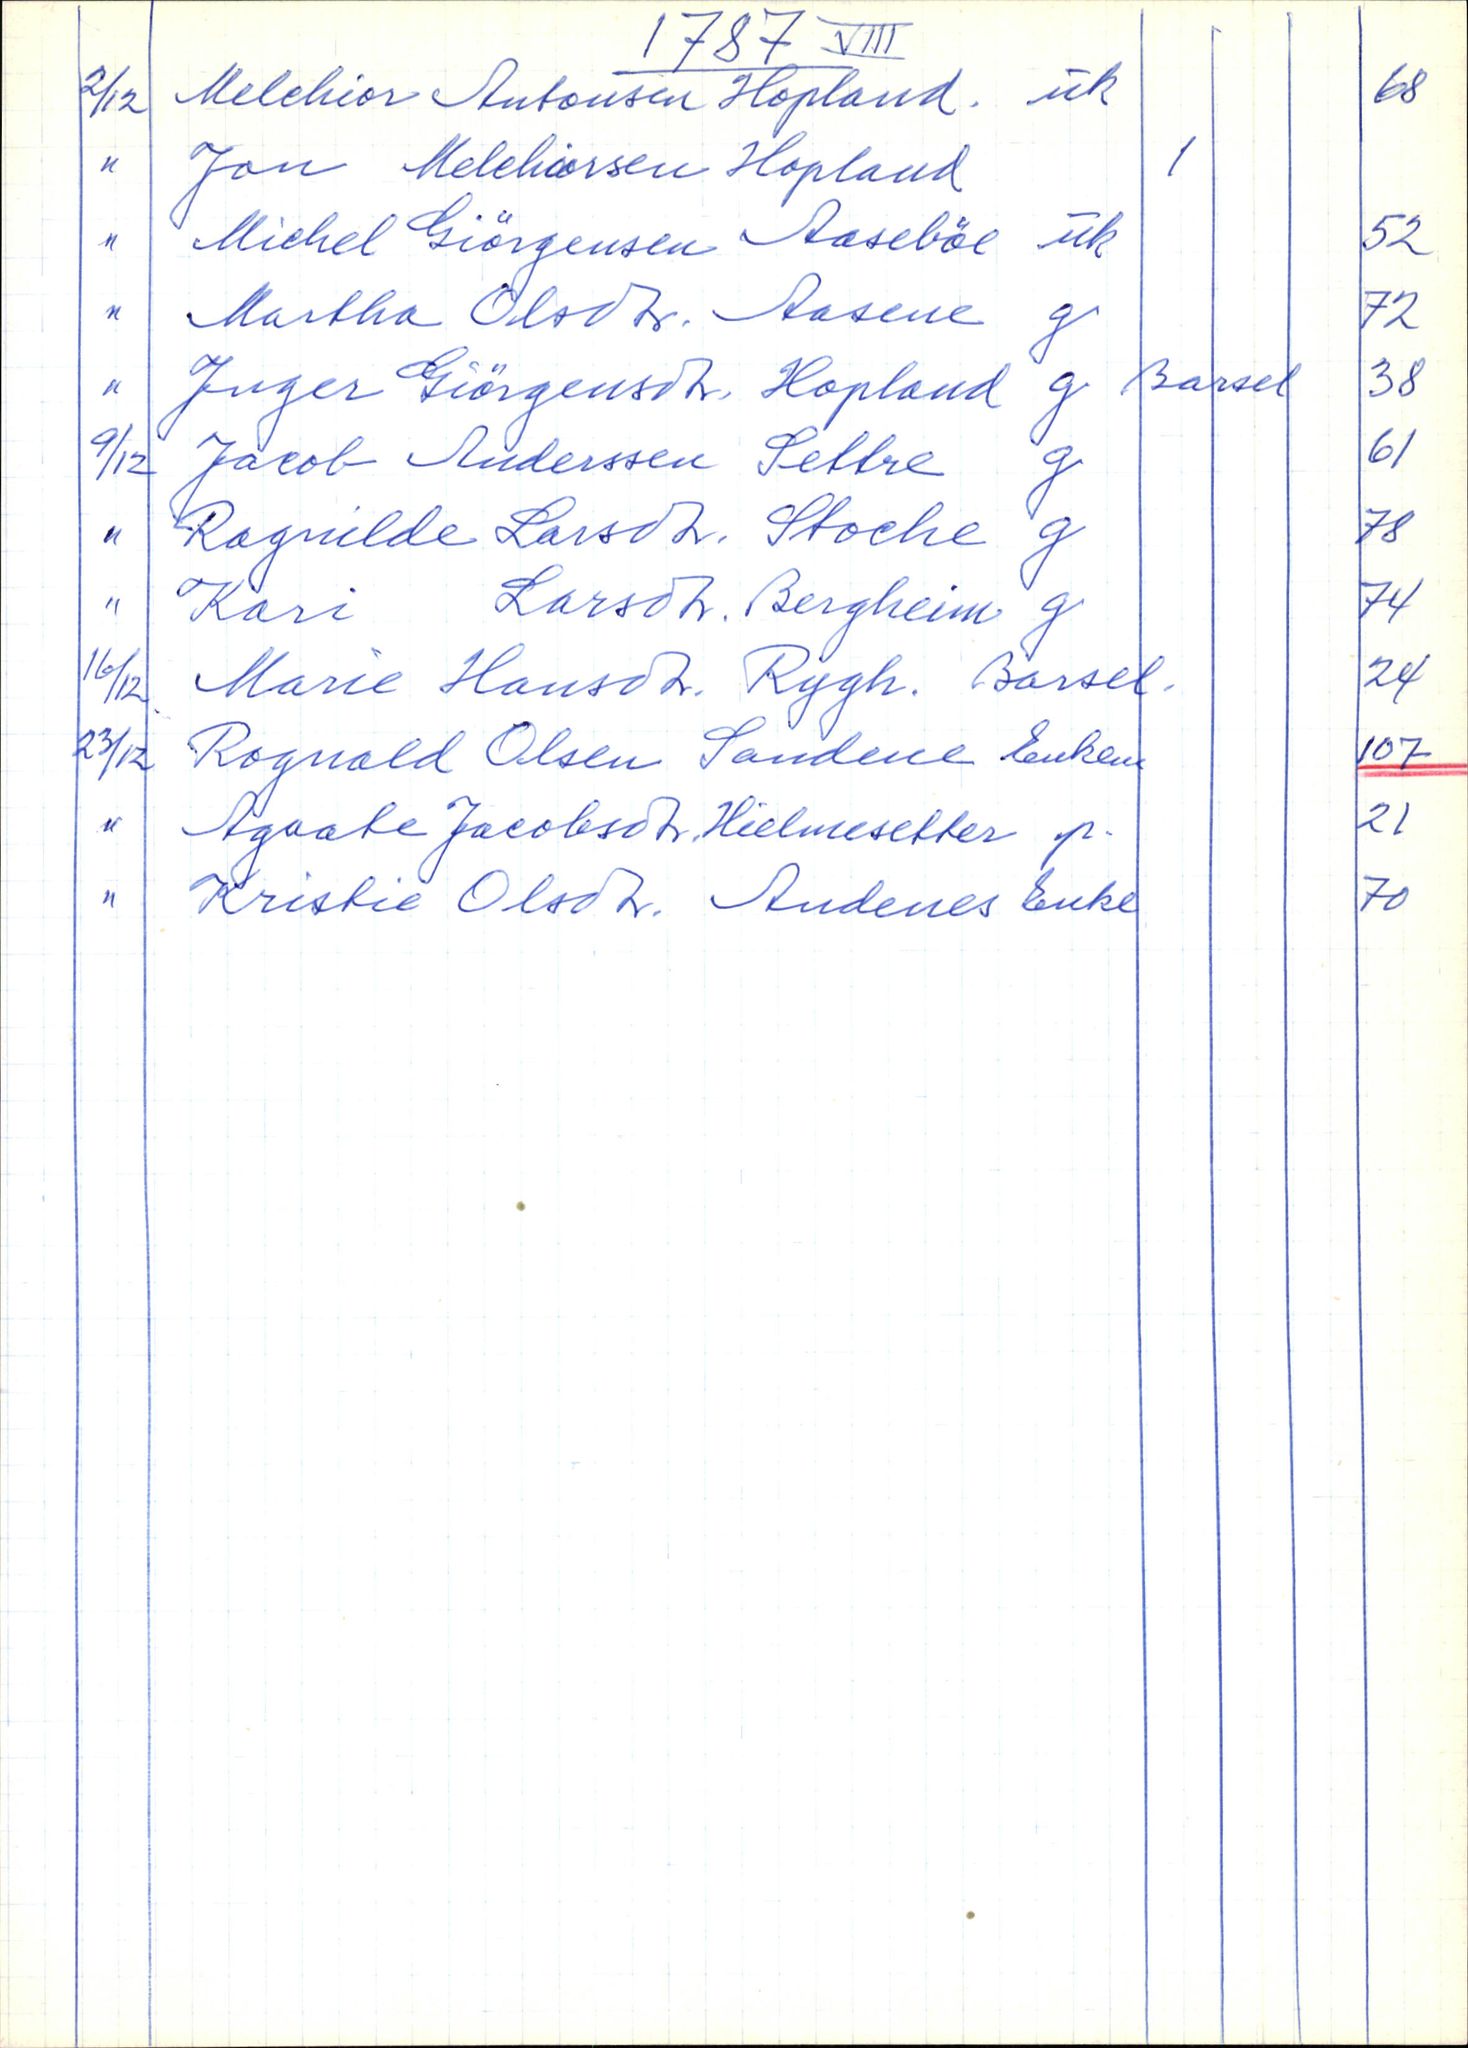 1787 VIII
2/12 Melchior Antonsen Hopland. ūk 68
" Jon Melchiorsen Hopland 1
" Michel Giörgensen Aaseböe ūk 52
" Martha Olsdtr. Aasene g 72
" Inger Giörgensdtr. Hopland g Barsel 38
9/12 Jacob Anderssen Settre g 61
" Ragnilde Larsdtr. Stoche g 78
" Kari Larsdtr. Bergheim g 74
16/12 Marie Hansdtr. Rygh. Barsel. 24
23/12 Rognald Olsen Sandene Enkem 107
" Agaate Jacobsdtr. Hielmesetter p. 21
" Kristie Olsdtr. Andenes Enke 70